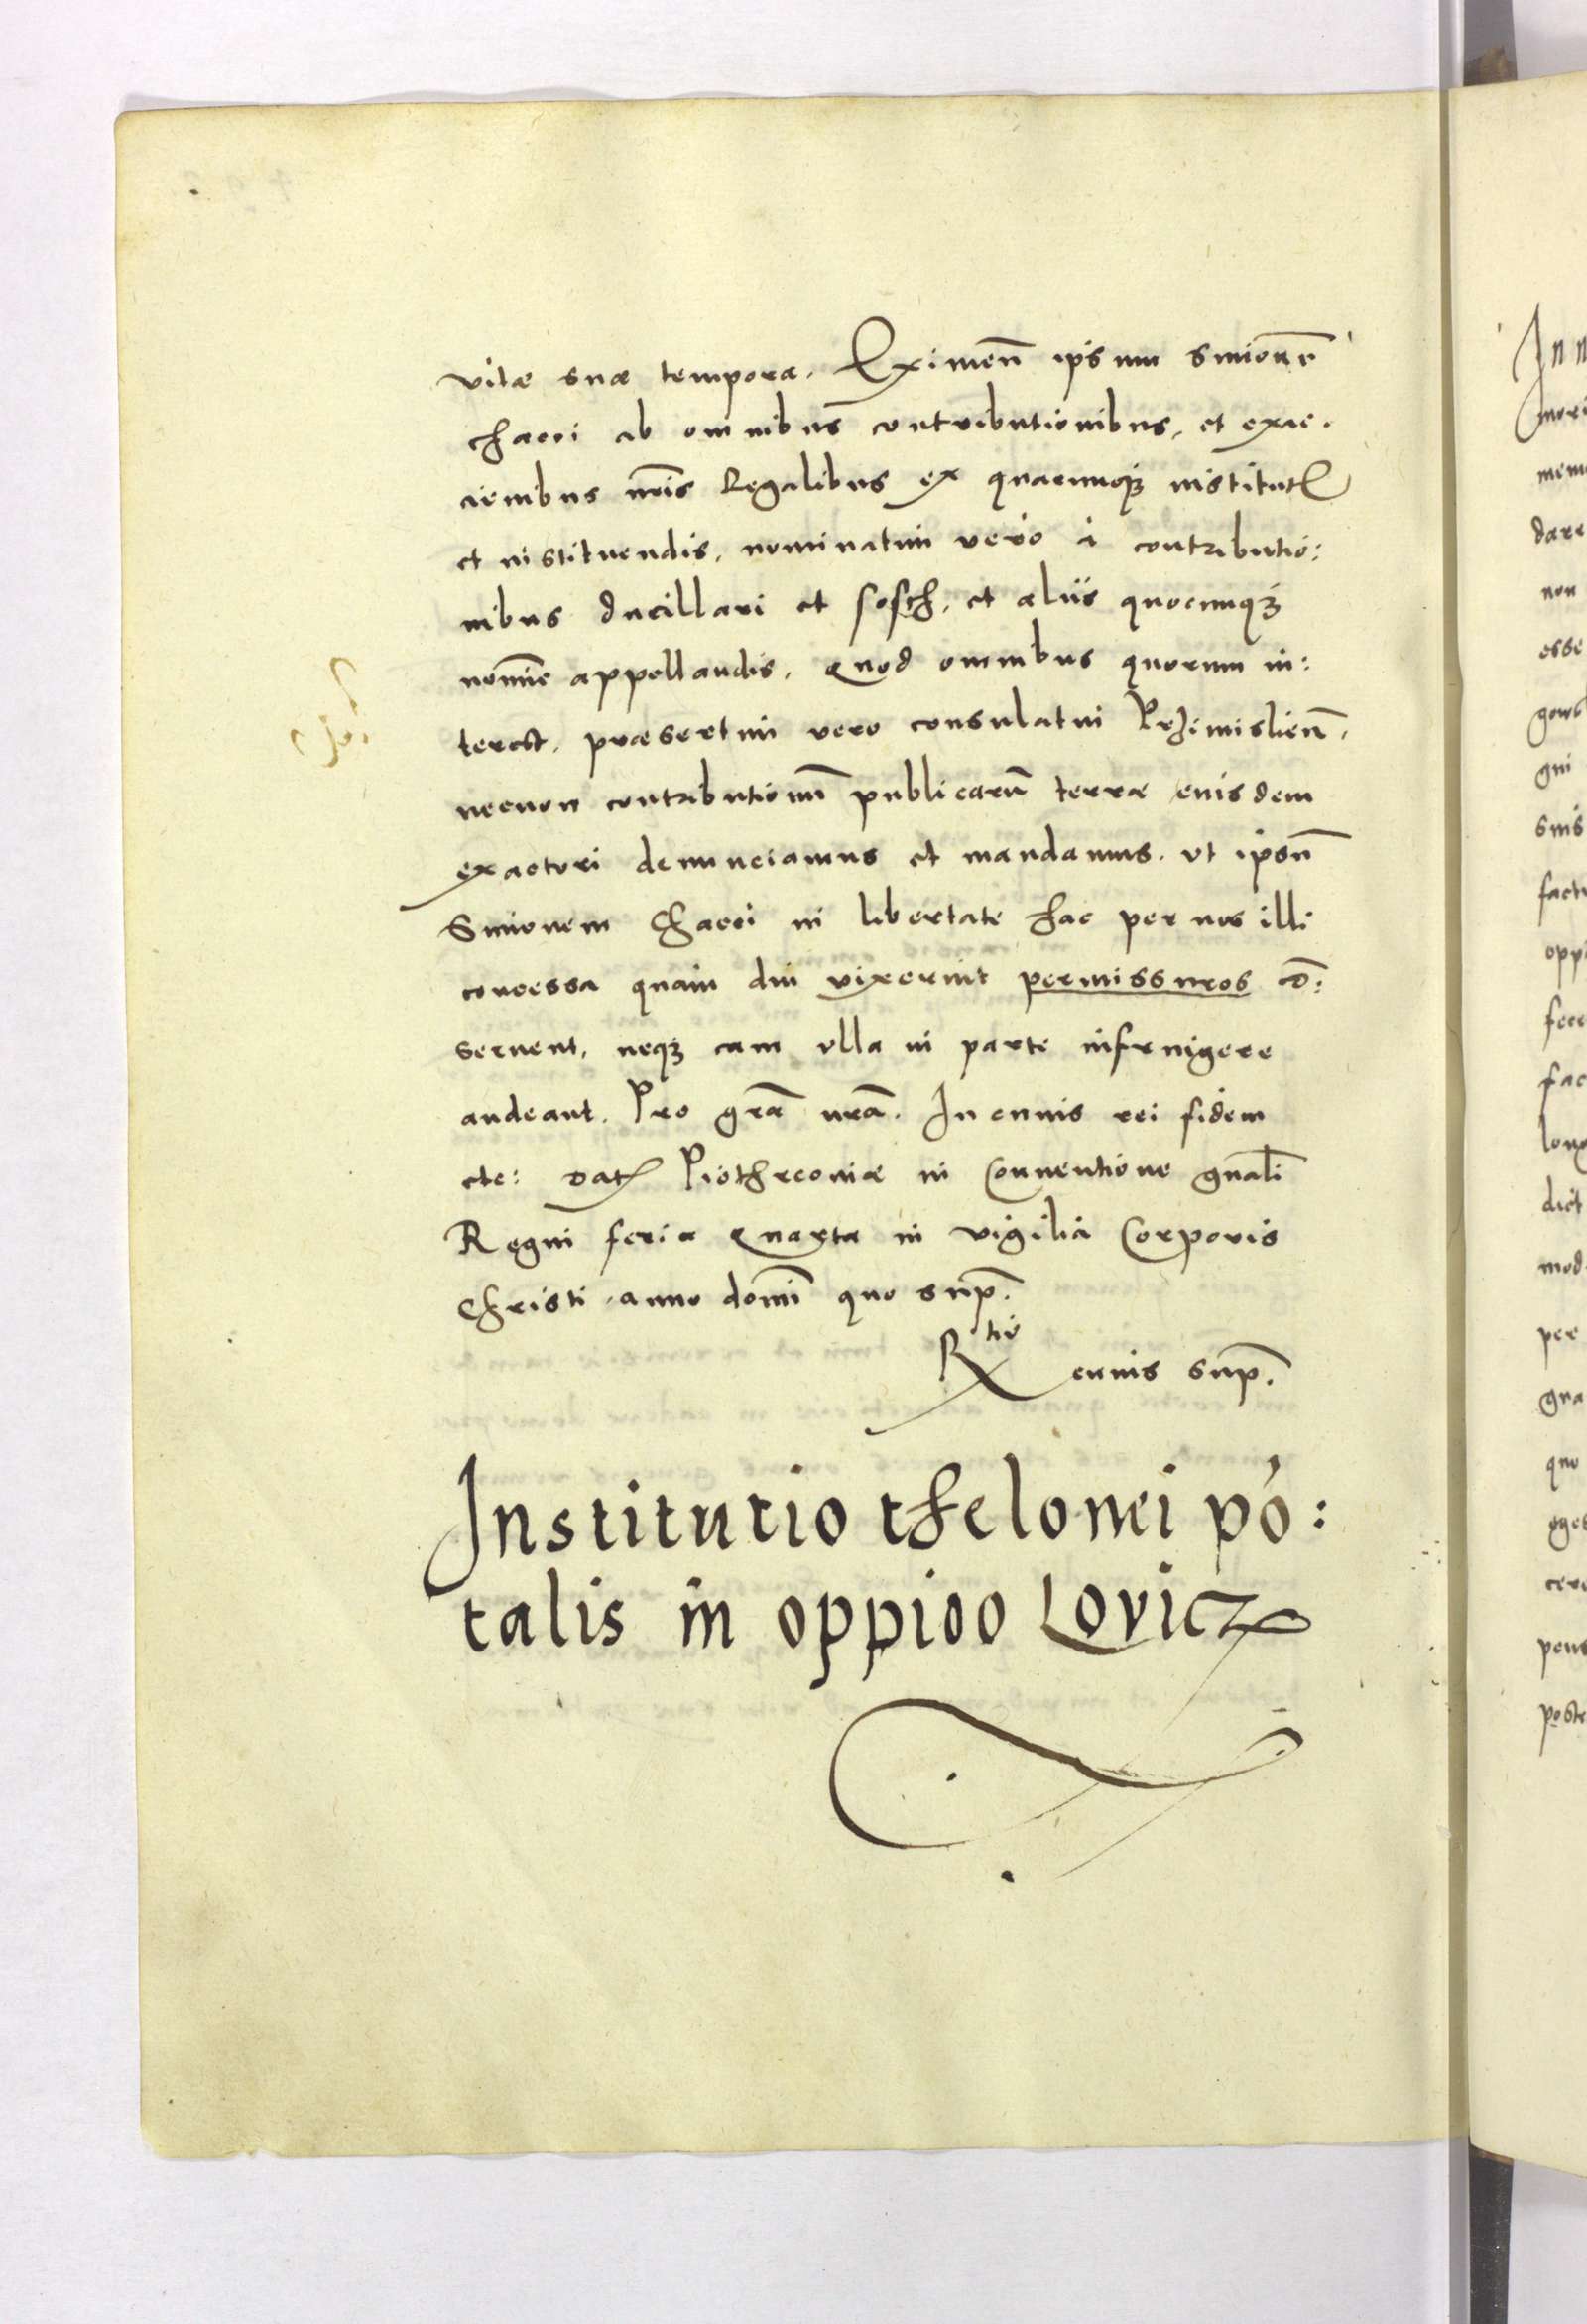 vitæ suæ tempora. Eximeñ ipsum Simonem
chacci ab omnibus contributionibus, et exac.
cionibus nr̄is Regalibus ex quacumq3 institut
et instituendis, nominatim vero à contributio:
nibus ducillari et sosch, et aliis quocumq3
nomine appellandis. Quod omnibus quorum in:
terest, præsertim vero consulatui Przimislieñ,
necnon contributionum publicarū terræ eiusdem
exactori denunciamus et mandamus. ut ipsum
Simonem Chacci in libertate hac per nos illi
concessa quam diu vixerint permissuros cō:
servent, neq3 eam ulla in parte infringere
audeant. Pro grā nrā. In cuius rei fidem
etc: Dat Piothrcoviæ in Conventione gnāli
Regni feria Quarta in vigilia Corporis
Christi anno domī quo sup.
Rtio cuius sup.
Institutio thelonei pō:
talis in oppido Lovicz